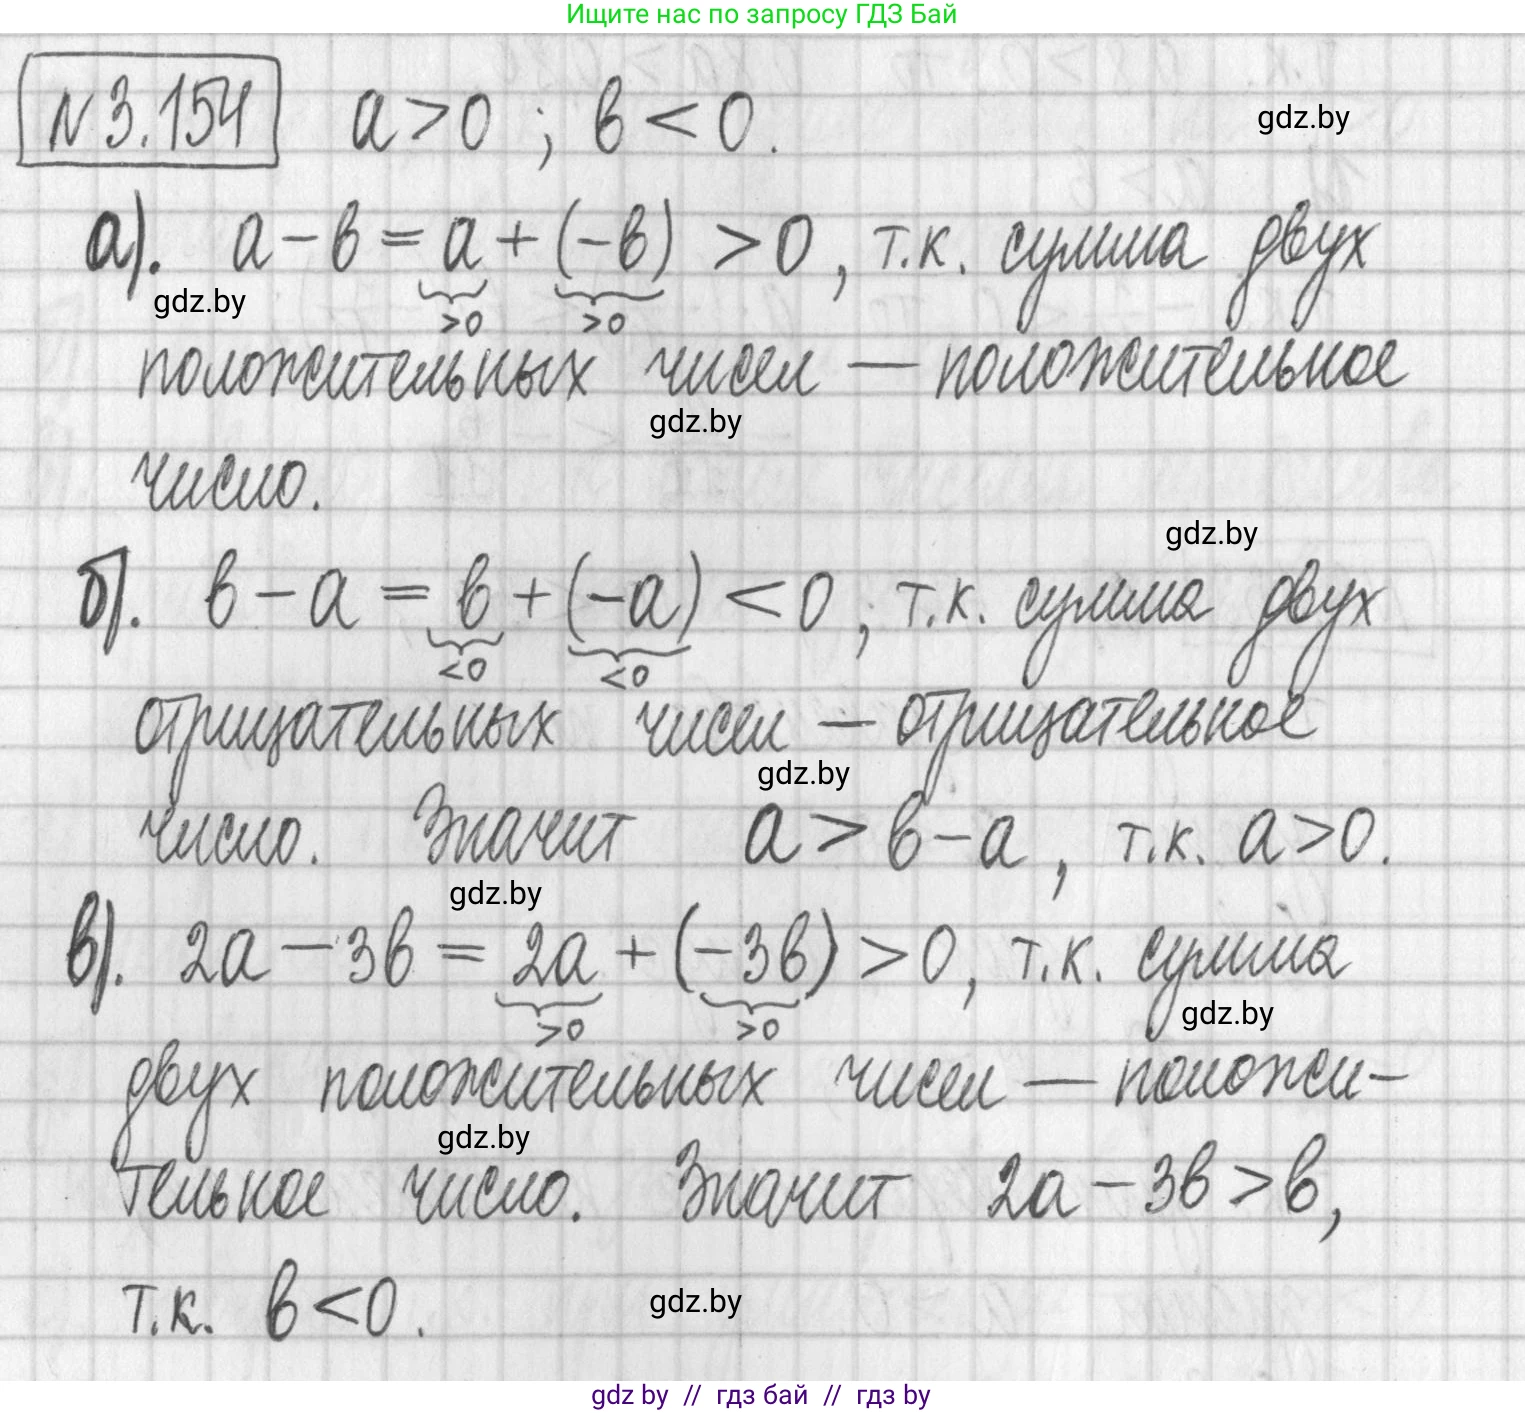 Ищите нас по запросу ГДЗ Бай
N3.154 a>0 ; в<0.
gdz.by
а). a-в=a+(-в) >0, т.к. сумма двух
>0 >0
gdz.by
положительных чисел — положительное
gdz.by
число.
gdz.by
б). в-a=в+(-a)<0, т.к. сумма двух
<0 <0
отрицательных чисел — отрицательное
gdz.by
число. Значит a>в-a, т.к. a>0.
gdz.by
в). 2a-3в=2a+(-3в)>0, т.к. сумма
gdz.by
>0 >0
двух положительных чисел — положи-
gdz.by
тельное число. Значит 2a-3в>в,
т.к. в<0.
gdz.by
gdz by // гдз бай // гдз by